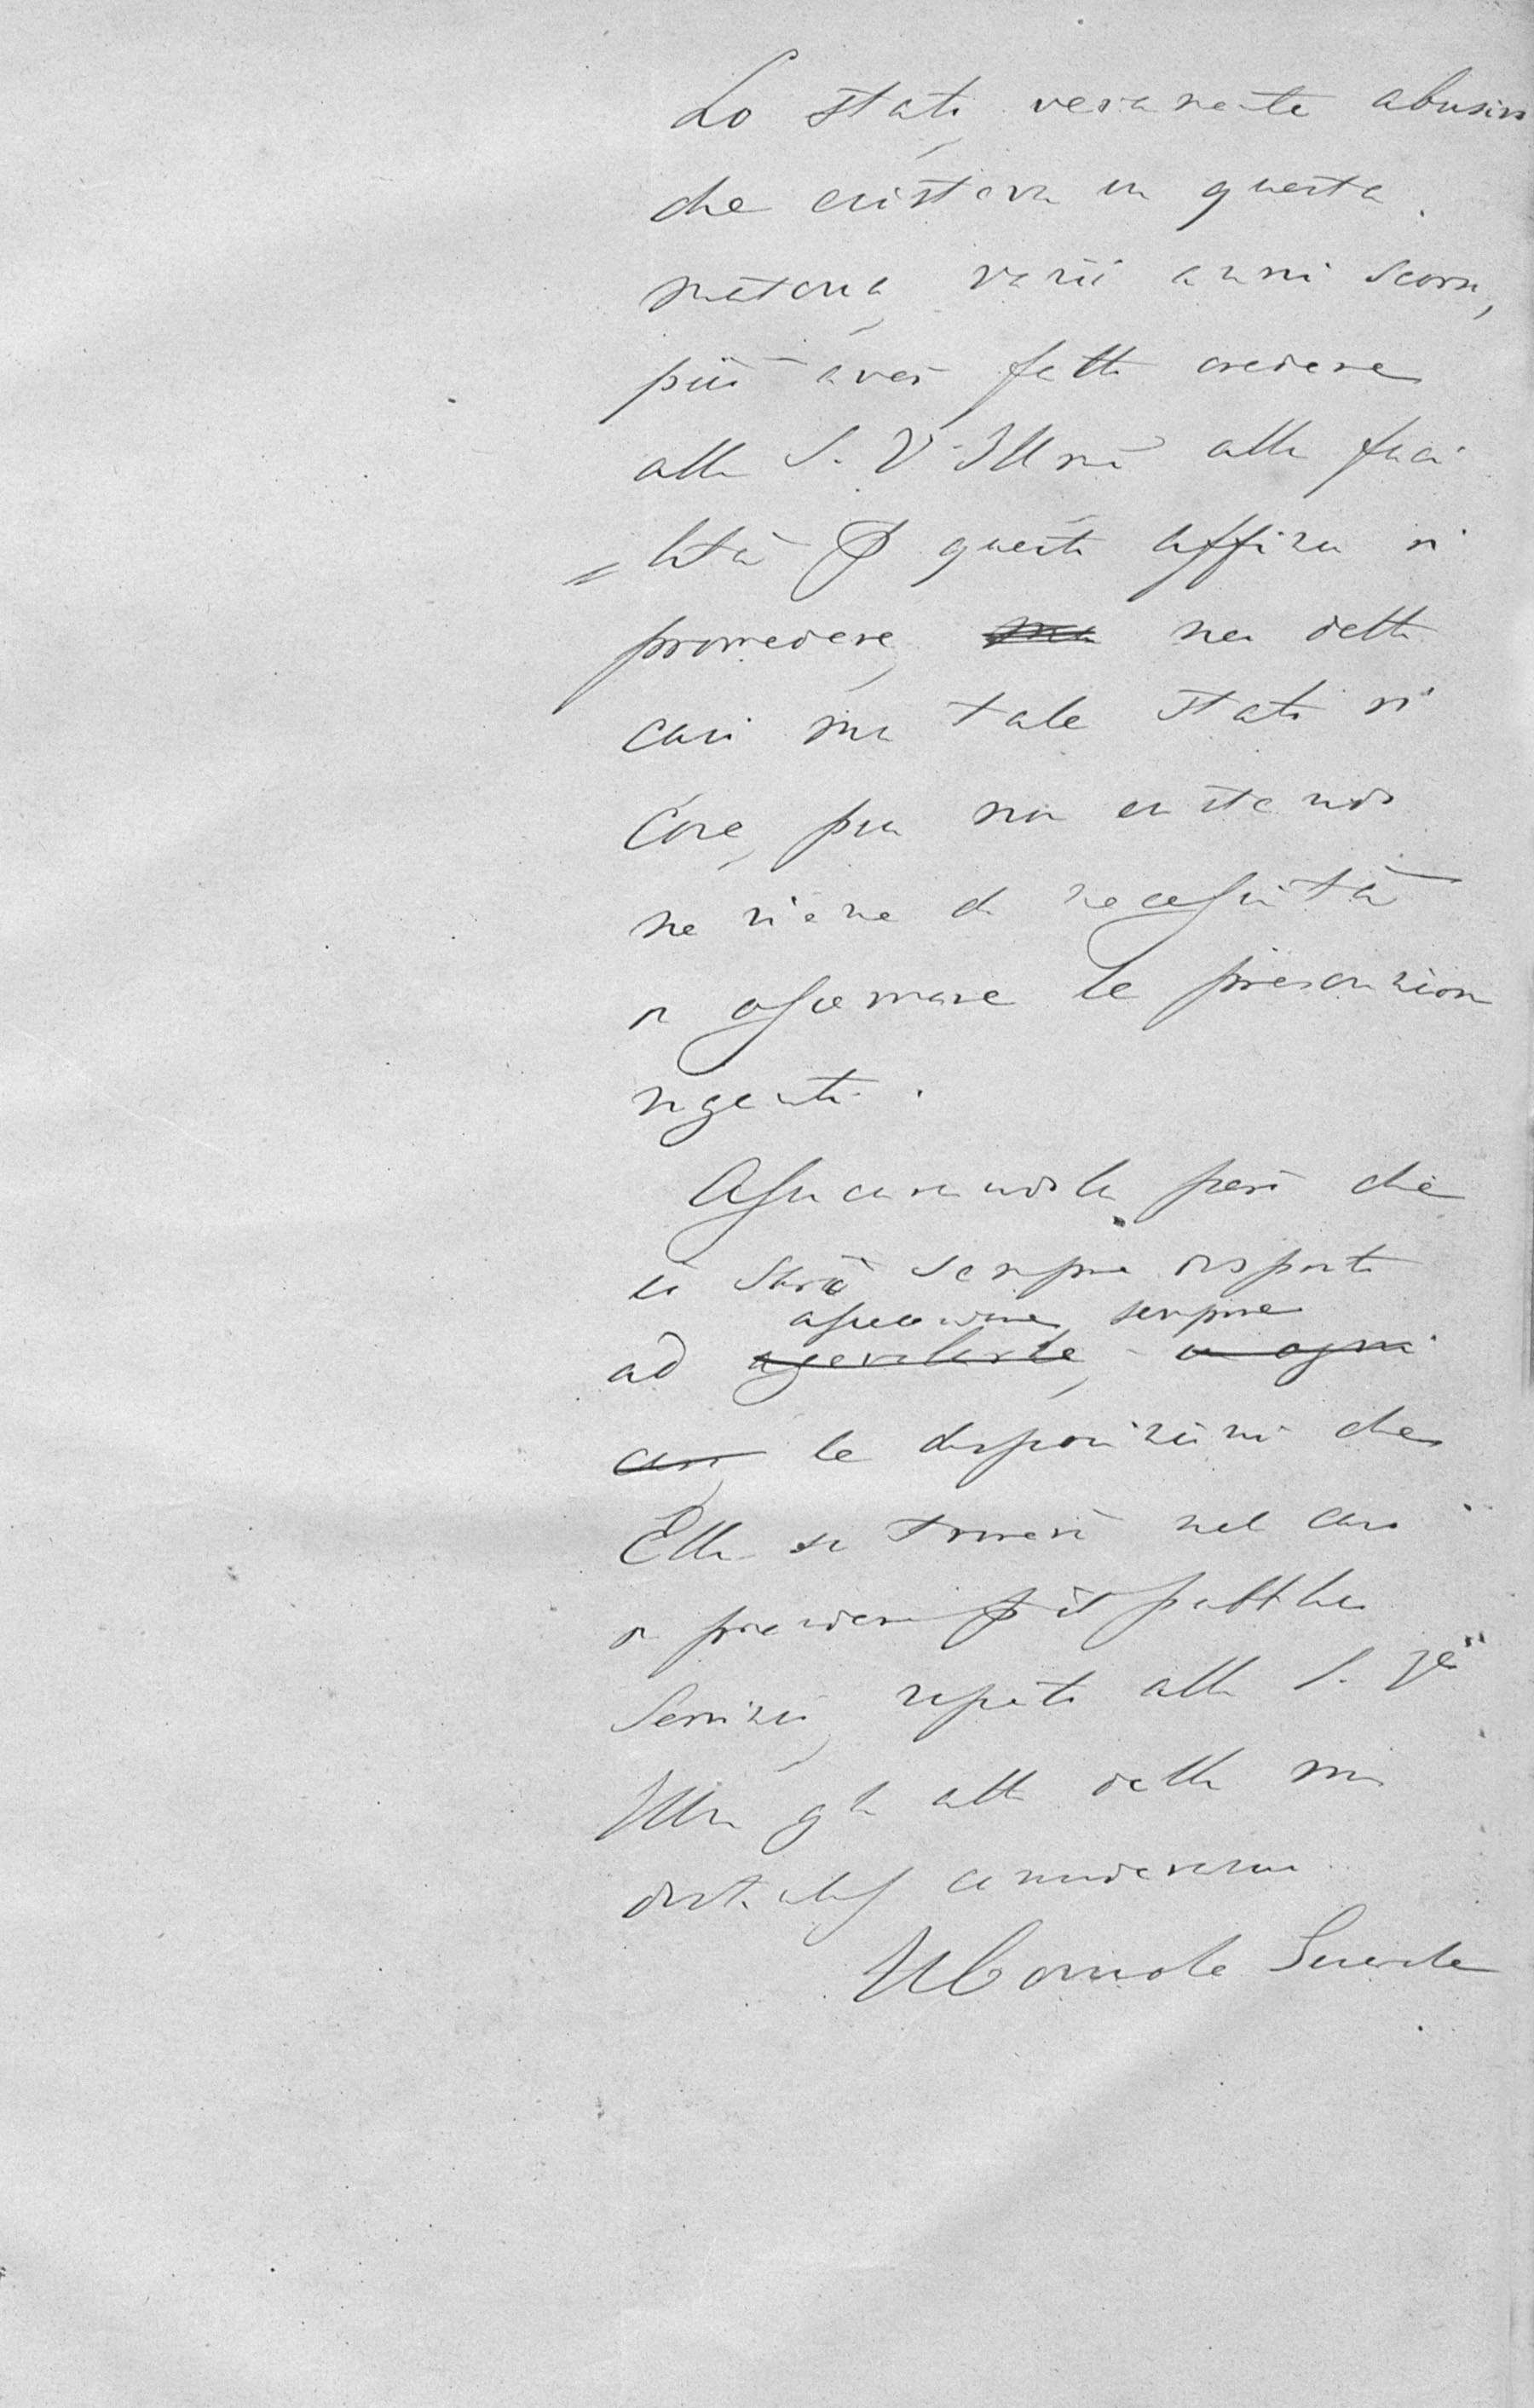 Lo stato veramente abusivo
che esisteva in questa
materia varii anni scorsi,
può aver fatto credere
alla S. V. Illma alla faci
=lità di questo Uffizio di
provvedere, nei detti
casi ma tale stato di
cose, più non esistendo
ne viene di necessità
di osservare le prescrizioni
vigenti.
Assicurandola però che
io sarò sempre disposto
assecondare sempre
ad agevolarla, in ogni
caso le disposizioni che
Ella si troverà nel caso
di prendere per il pubblico
Servizio, ripeto alla S. Va
Illma gli atti della mia
distinta considerazione
Il Console Generale